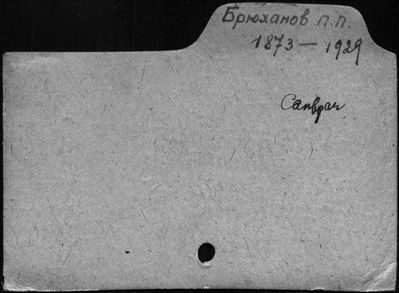 Брюханов П.П.
1873 — 1929
Санврач